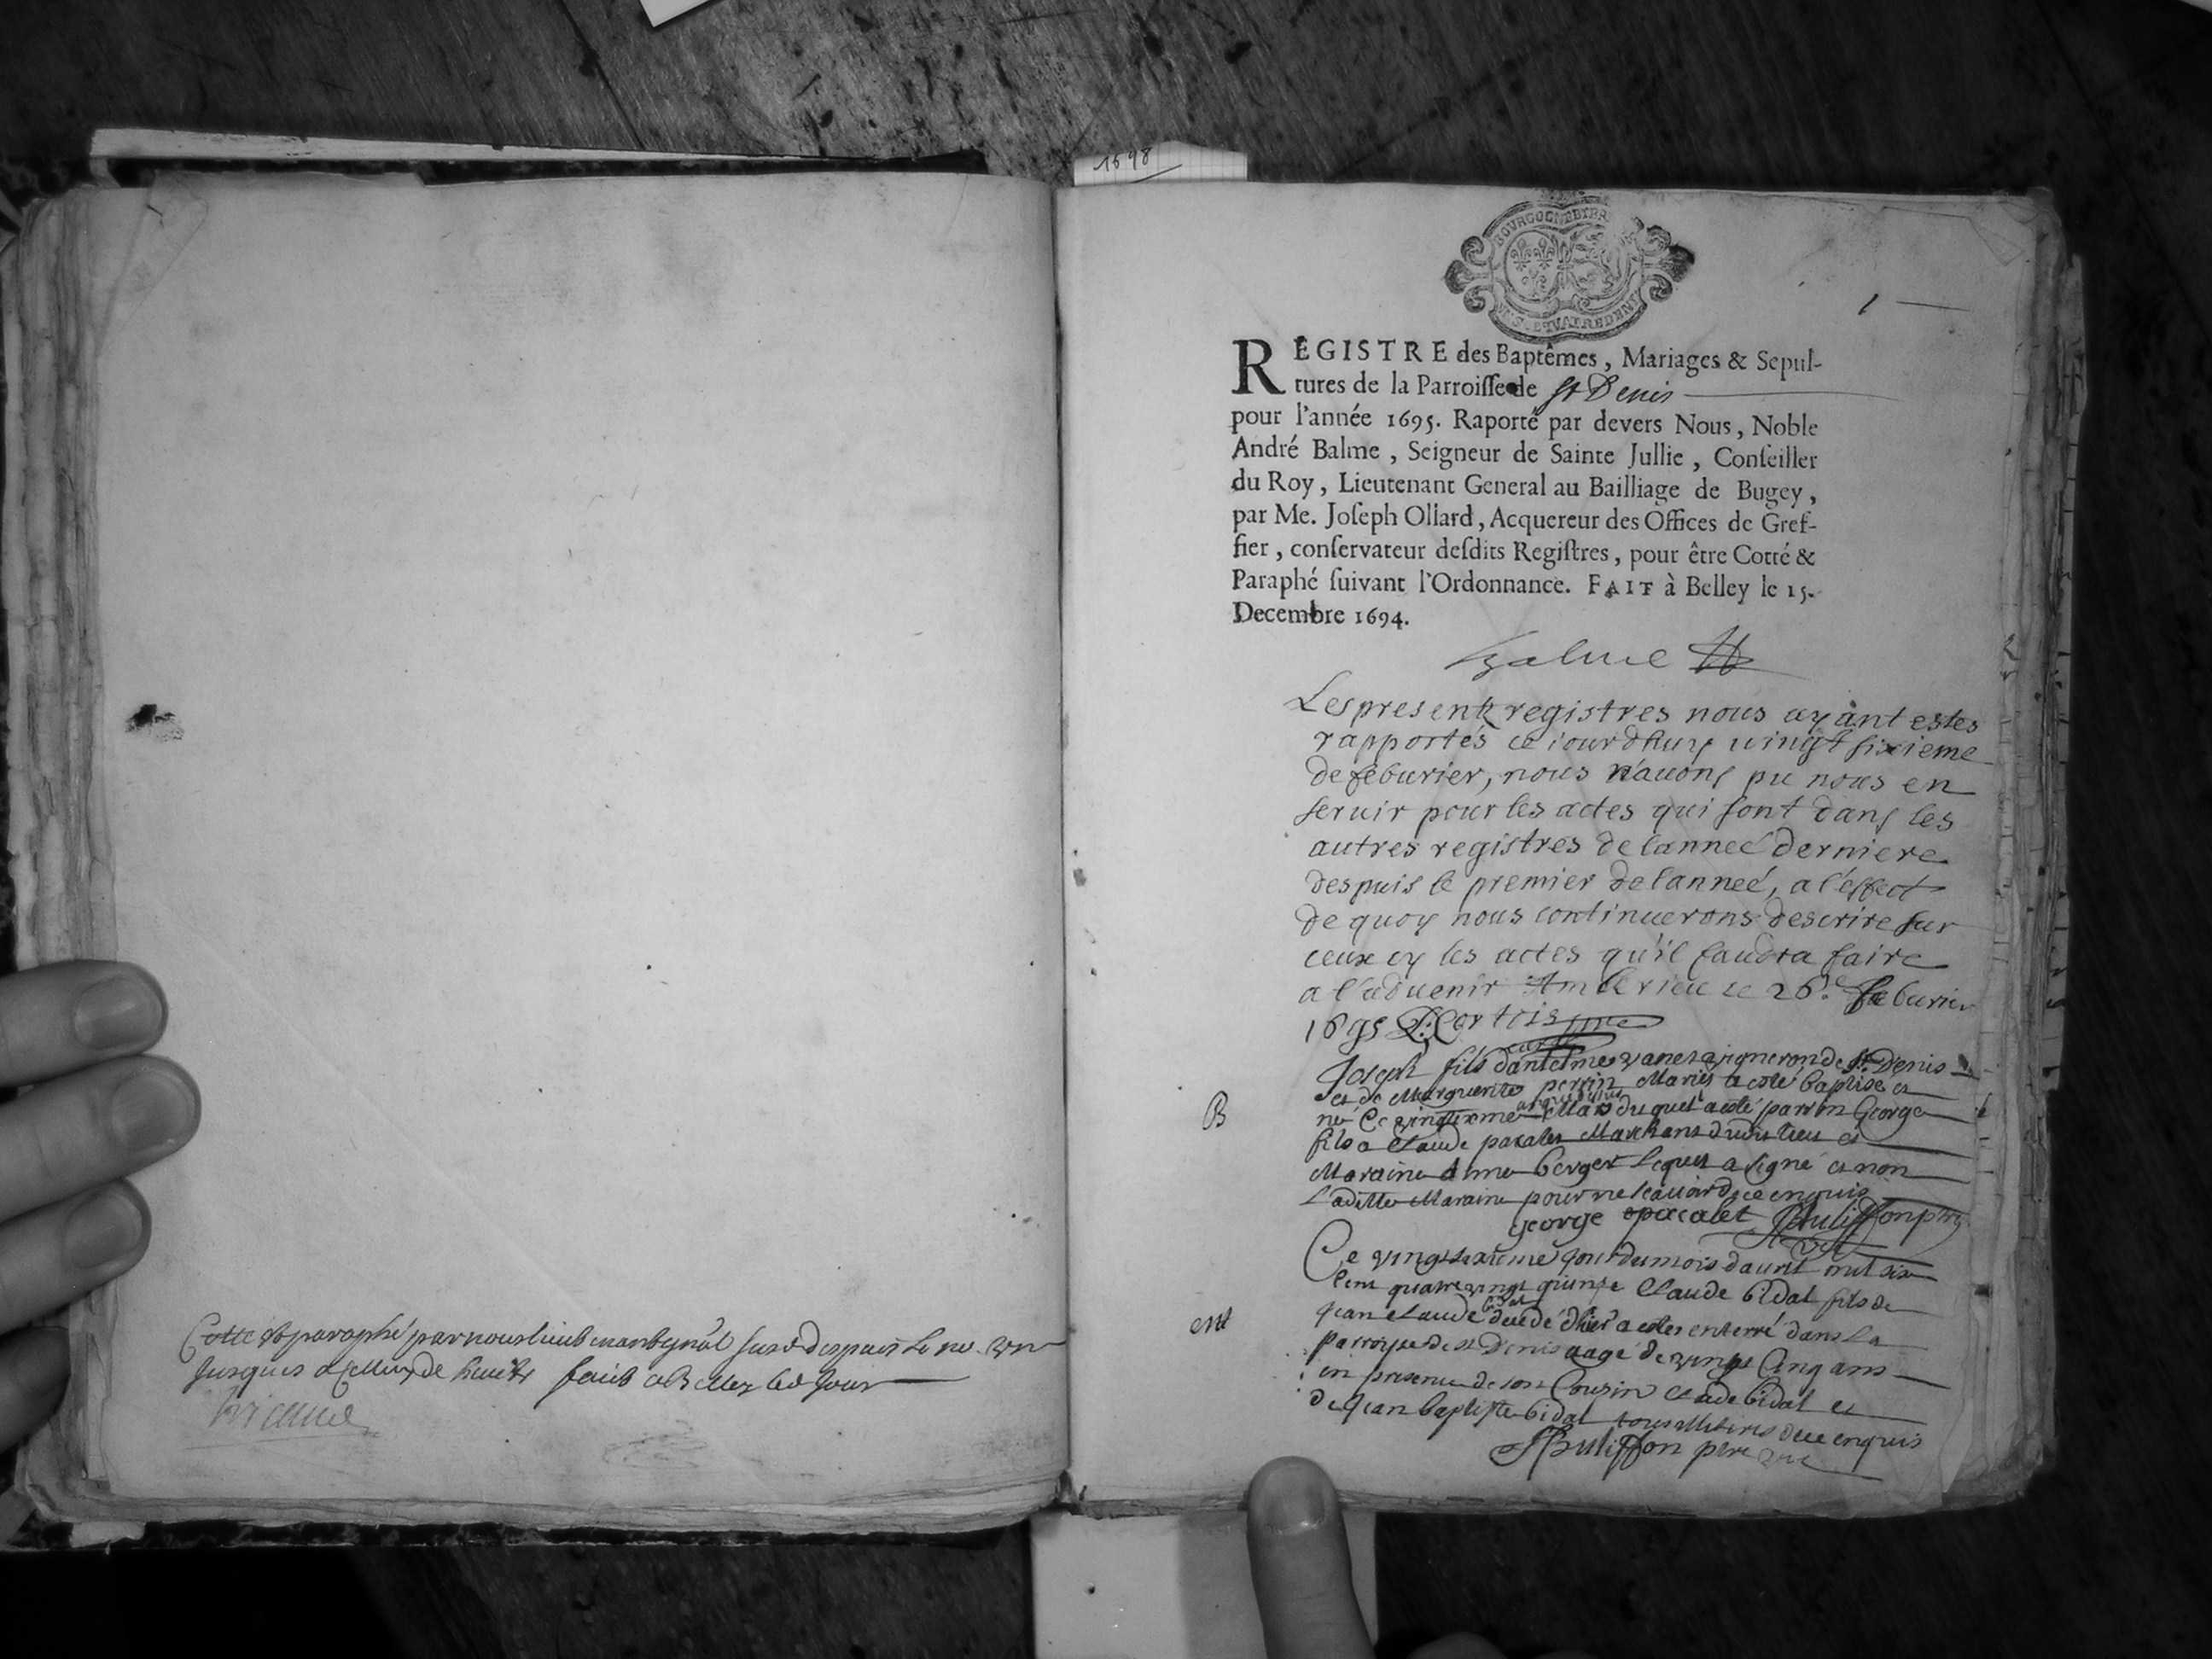 Cotte et paraphé par nous lieut
Jusques a Celluy de huict fait a Belley led Jour
1698
BOURGOGNE
1
REGISTRE des Baptêmes, Mariages & Sepul-
tures de la Parroisse de St Denis
pour l'année 1695. Raporté par devers Nous, Noble
André Balme, Seigneur de Sainte Jullie, Conseiller
du Roy, Lieutenant General au Bailliage de Bugey,
par Me. Joseph Ollard, Acquereur des Offices de Gref-
fier, conservateur desdits Registres, pour être Cotté &
Paraphé suivant l'Ordonnance. FAIT à Belley le 15.
Decembre 1694.
Balme
Les presentz registres nous ayant estes
rapportés ce iourdhuy vingt sixieme
de feburier, nous n'auons pu nous en
seruir pour les actes qui sont dans les
autres registres de lanneé derniere
despuis le premier de lanneé, a l'effect
de quoy nous continuerons descrire sur
ceux cy les actes qu'il faudra faire
a l'aduenir Amberieu le 26.e feburier
1695
Joseph fils dantelme vigneron de St Denis
et de Marguerite perrin Mariés a esté baptisé et
B
né Ce Mars duquel a esté parrin George
fils a Claude pacalet Marchant dudit lieu et
Maraine Anne berger lequel a signé et non
Laditte Maraine pour ne scauoir de ce enquis
george pacalet
Ce vingt jour du mois dauril mil six
Cent quatre vingt quinze Claude bidal fils de
ent
Jean Claude bidal decedé dhier a estes enterré dans la
parroysse de st Denis aagé de vingt Cinq ans
en presence de son Cousin Claude bidal et
de Jean baptiste bidal tous de ce enquis